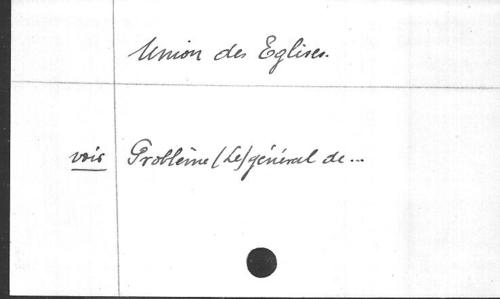 Union des Eglises.
voir Problème (Le) général de...